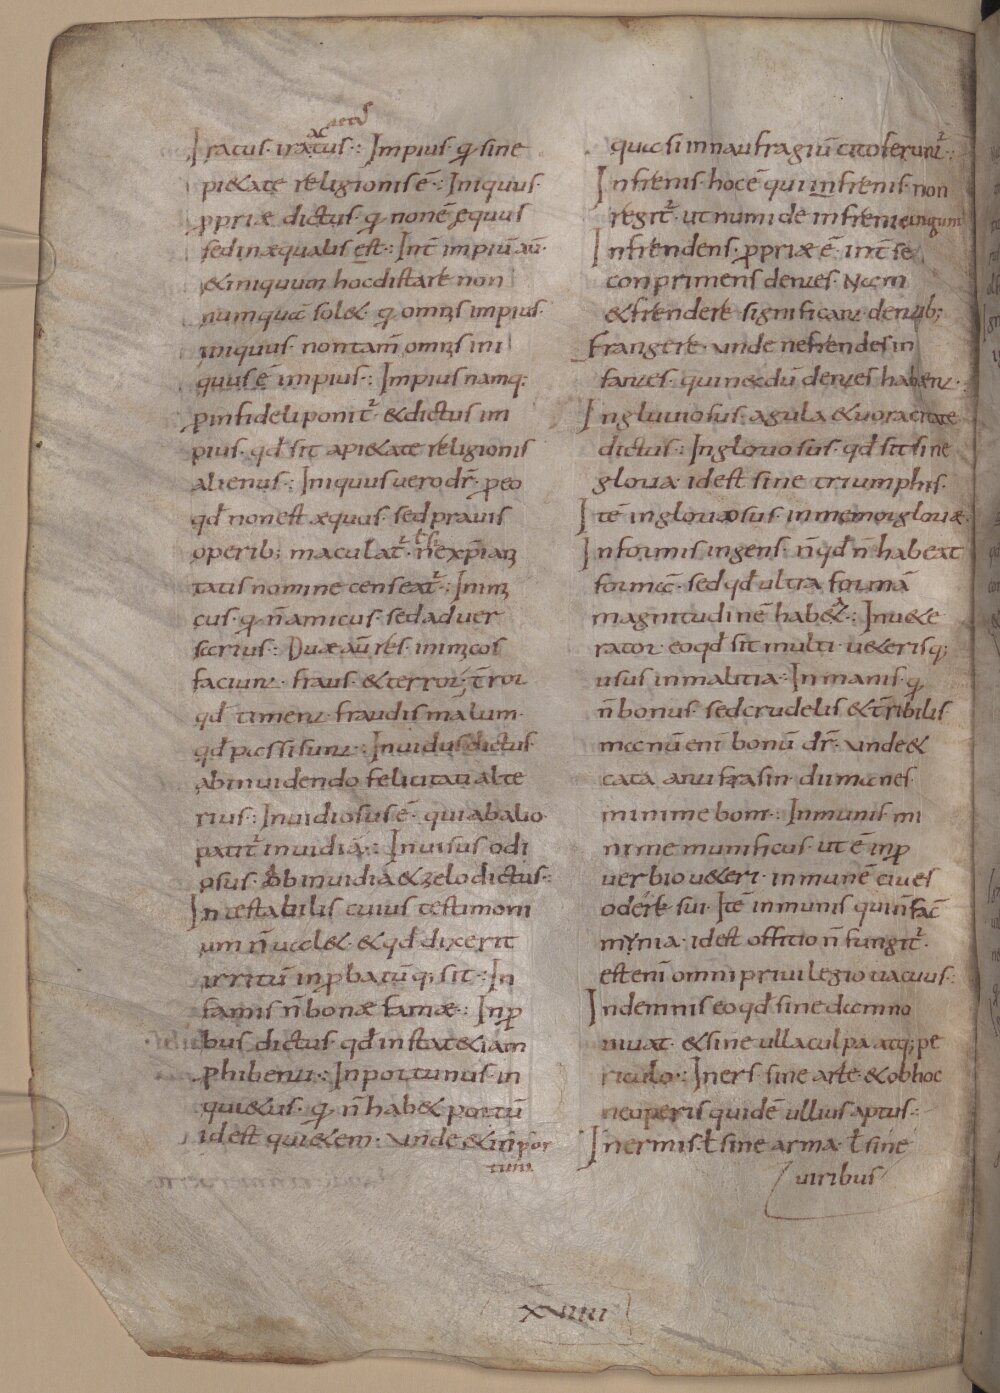 ac actus
Iratus· iratus·: Impius· q̄ sine
pietate religionis ē·: Iniquus·
ꝓpriæ dictus· q̄ non ē æquus
sed inæqualis est·: Int̄ impiū aū·
& iniquum hoc distare non
numquā sol&· q̄ omīs impius·
iniquus· non tam̄ omīs ini
quus ē impius·: Impius namq;
ꝓ infideli ponit̄· & dictus im
pius· qđ sit a pi&ate religionis
alienus·: Iniquus vero dr̄· ꝑ eo
qđ non est æquus· sed pravis
operib; maculat̄· ł si n̄ expian
tatis nomine censeat̄·: Inim
cus· q̄ n̄ amicus· sed adver
sarius·: Duæ aū res· inimcos
faciunt· fraus· & terror· t̄ror
qđ timent· fraudis malum·
qđ passi sunt·: Invidus dictus·
ab invidendo felicitati alte
rius·: Invidiosus ē· qui ab alio
patit̄ invidiā·: Invisus odi
osus· ob invidiā & zelo dictus·:
Intestabilis cuius testimoni
um n̄ val&· & qđ dixerit
irritū inꝓbatūq; sit·: In
famis n̄ bonæ famæ·: Inꝓ
bus dictus· qđ instat &iam
ꝓhibenti·: Inportunus· in
qui&us· q̄· n̄ hab& portū
id est qui&em· unde & inpor
tuni
quasi in naufragiū cito ferunt̄·:
Infrenis· hoc ē qui in frenis· non
regit̄· ut numide infreni cingunt
Infrendens· ꝓpriæ ē· int̄ se
conprimens dentes· Nam
& frendere significat dentib;
frangere· unde nefrendes in
fantes· qui necdū dentes habent·
Ingluviosus· a gula & voracitate
dictus·: Ingloriosus· qđ sit sine
gloria id est sine triumphis·
Itē ingloriosus· inmemor gloriæ·
Informis ingens· n̄ qđ n̄ habeat
formā· sed qđ ultra formā
magnitudinē hab&·: Inv&e
rator eo qđ sit multi· v&erisq;
usus in malitia·: Inmanis· q̄
n̄ bonus· sed crudelis & t̄ribilis
manū eni bonū dr̄· unde &
cata antifrasin· dii manes
minime boni·: Inmunis· mi
nime munificus· ut ē inꝓ
verbio v&eri· inmunē cives
odere sui· Itē inmunis qui n̄ fac̄
mynia· id est offitio n̄ fungit̄·
est eni omni privilegio vacuus·:
Indemnis eo qđ sine damno
vivat· & sine ulla culpa atq; pe
riculo·: Iners· sine arte· & ob hoc
ne operis quidē ullius aptus·:
Inermis· ł sine arma· ł sine
viribus
xviiii